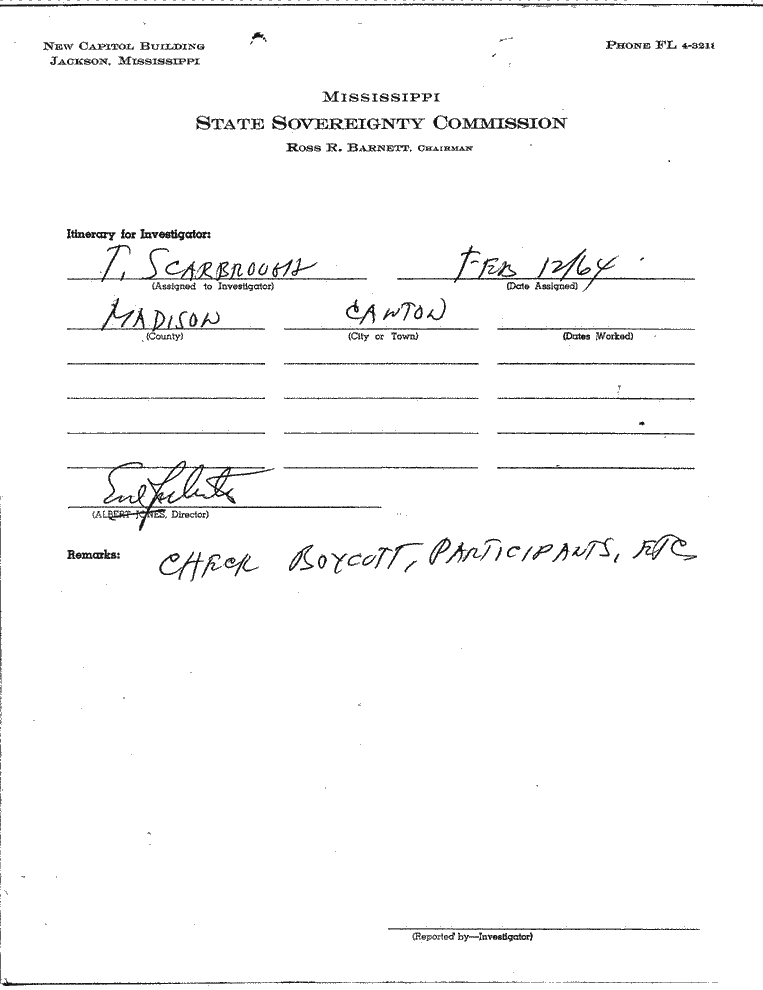 NEW CAPITOL BUILDING
JACKSON, MISSISSIPPI
PHONE FL 4-3218
MISSISSIPPI
STATE SOVEREIGNTY COMMISSION
ROSS R. BARNETT, CHAIRMAN
Itinerary for Investigator:
T. SCARBROUGH FEB 12/64
(Assigned to Investigator) (Date Assigned)
MADISON CANTON
(County) (City or Town) (Dates Worked)
(ALBERT JONES, Director)
Remarks: CHECK BOYCOTT, PARTICIPANTS, ETC
(Reported by—Investigator)